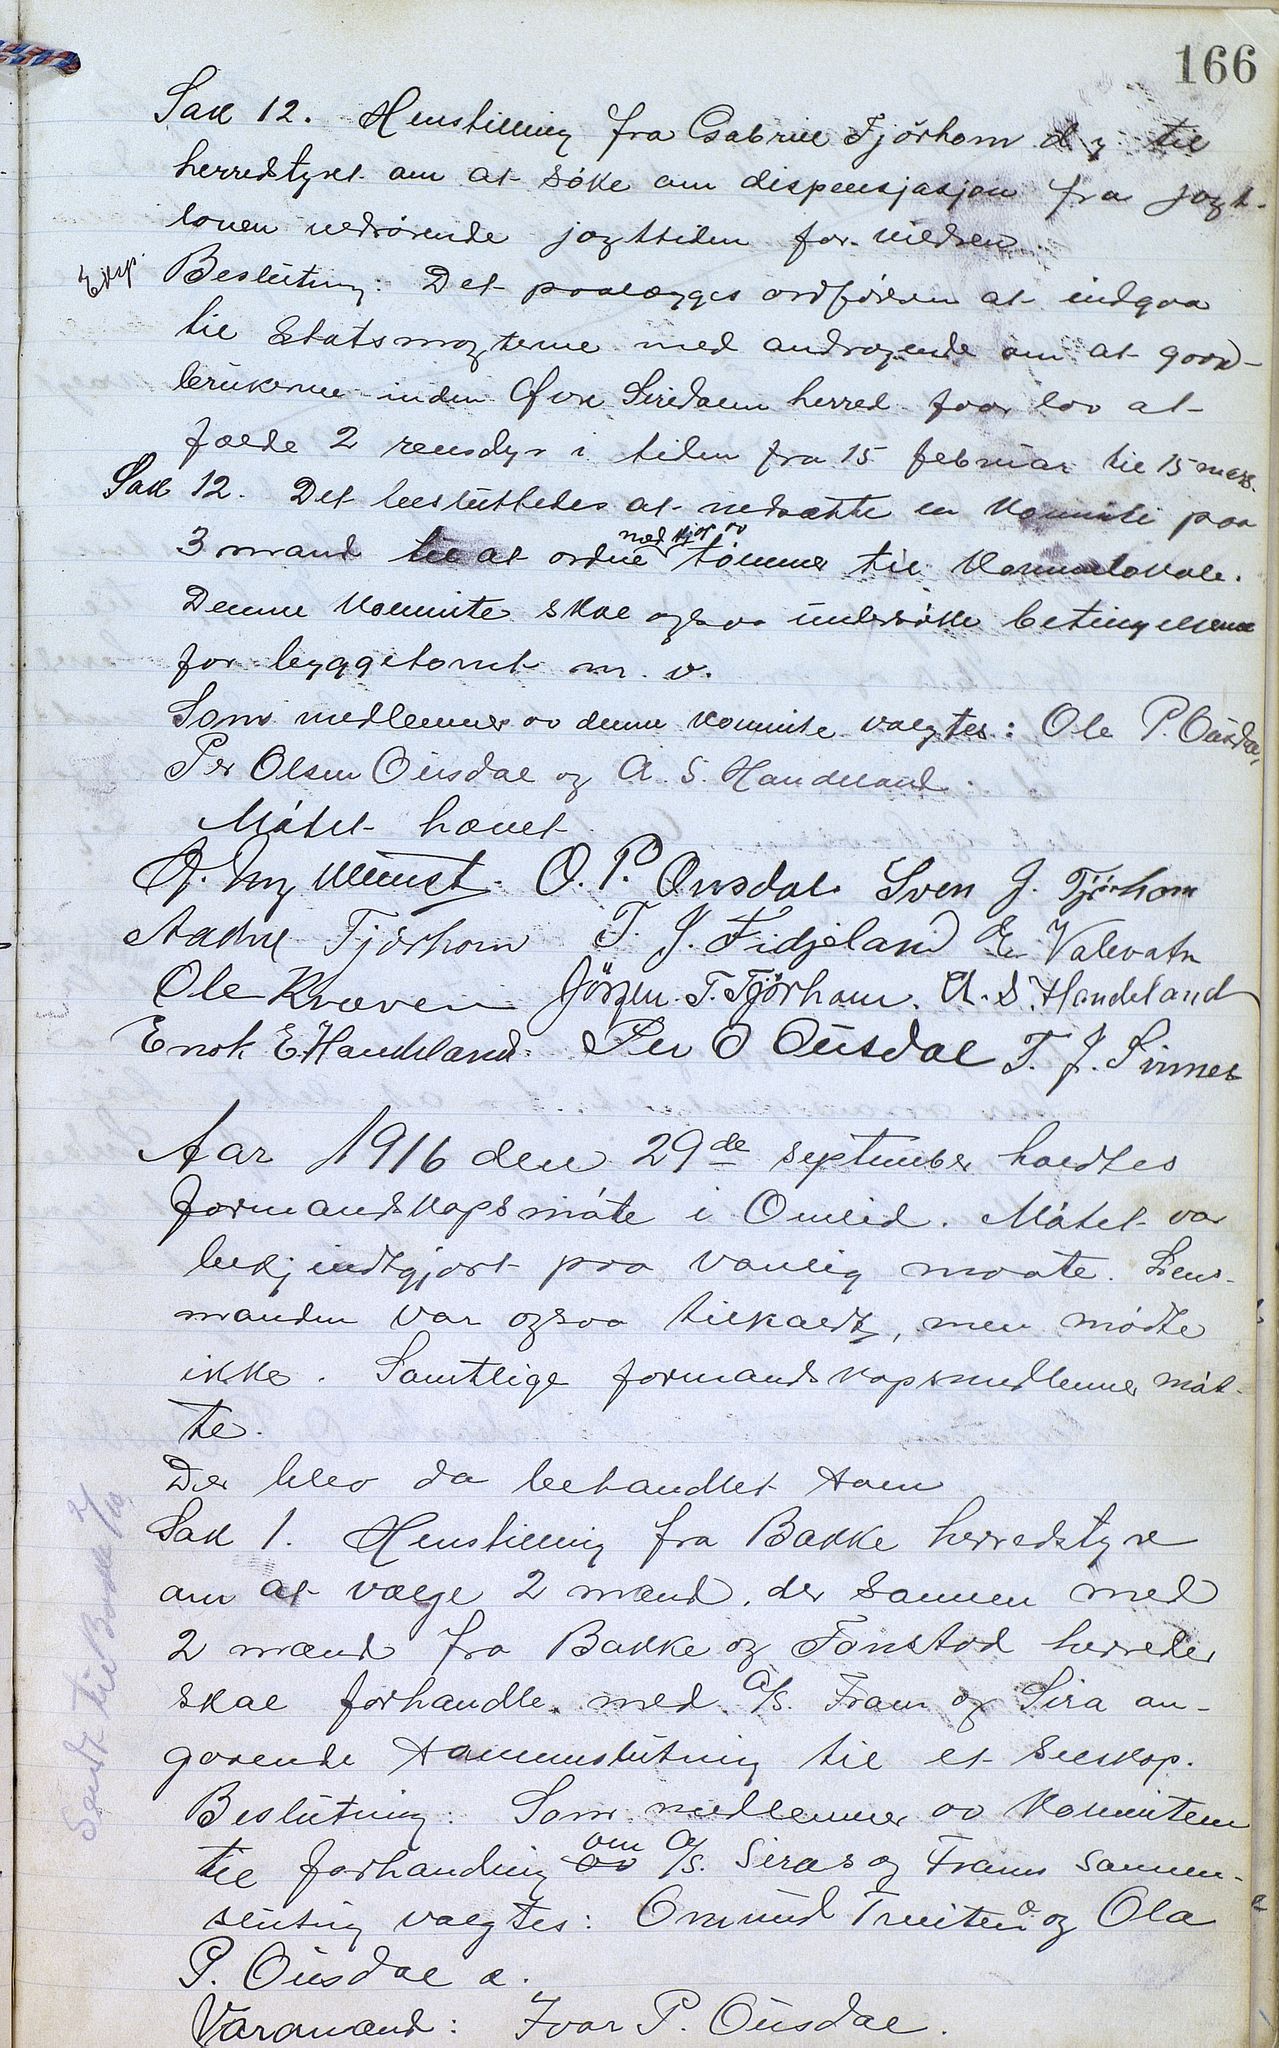 166
Sak 12. Henstilling fra Gabriel Tjörhom d. y. til
herredstyret om at søke om dispensjasjon fra jagt-
loven vedrørende jagttiden for vildren.
Eksp.
Beslutning: Det paalægges ordføreren at indgaa
til Statsmagterne med andragende om at gaard-
brukerne inden Øvre Siredalen herred faar lov at
fælde 2 rensdyr i tiden fra 15 februar til 15 mars.
Sak 12. Det besluttedes at nedsætte en komite paa
3 mand til at ordne med kjøp av tømmer til komunelokale.
Denne komite skal ogsaa undersøke betingelserne
for byggetomt m. v.
Som medlemmer av denne komite valgtes: Ole P. Ousdal,
Per Olsen Ousdal og A. S. Handeland.
Møtet hævet.
O. P. Ousdal. Sven J. Tjørhom
Tjörhom T. J. Fidjeland E. Valevatn
Ole Kvæven Jörgen T. Tjörhom. A. S. Handeland
Enok E. Handeland. Per O Ousdal T. J. Sinnes
Aar 1916 den 29de september holdtes
formandskapsmøte i Omlid. Møtet var
bekjendtgjort paa vanlig maate. Lens-
manden var ogsaa tilkaldt, men mødte
ikke. Samtlige formandskapsmedlemmer møt-
te.
Der blev da behandlet som
Sak 1. Henstilling fra Bakke herredstyre
om at vælge 2 mænd, der sammen med
2 mænd fra Bakke og Tonstad herreder
skal forhandle med A/S. Fram og Sira an-
gaaende sammenslutning til et selskap.
Sendt til Bakke 2/10
Beslutning: Som medlemmer av komiteen
til forhandling om A/S. Siras og Frams sammen-
slutning valgtes: Omund og Ola
P. Ousdal æ.
Varamand: Ivar P. Ousdal.